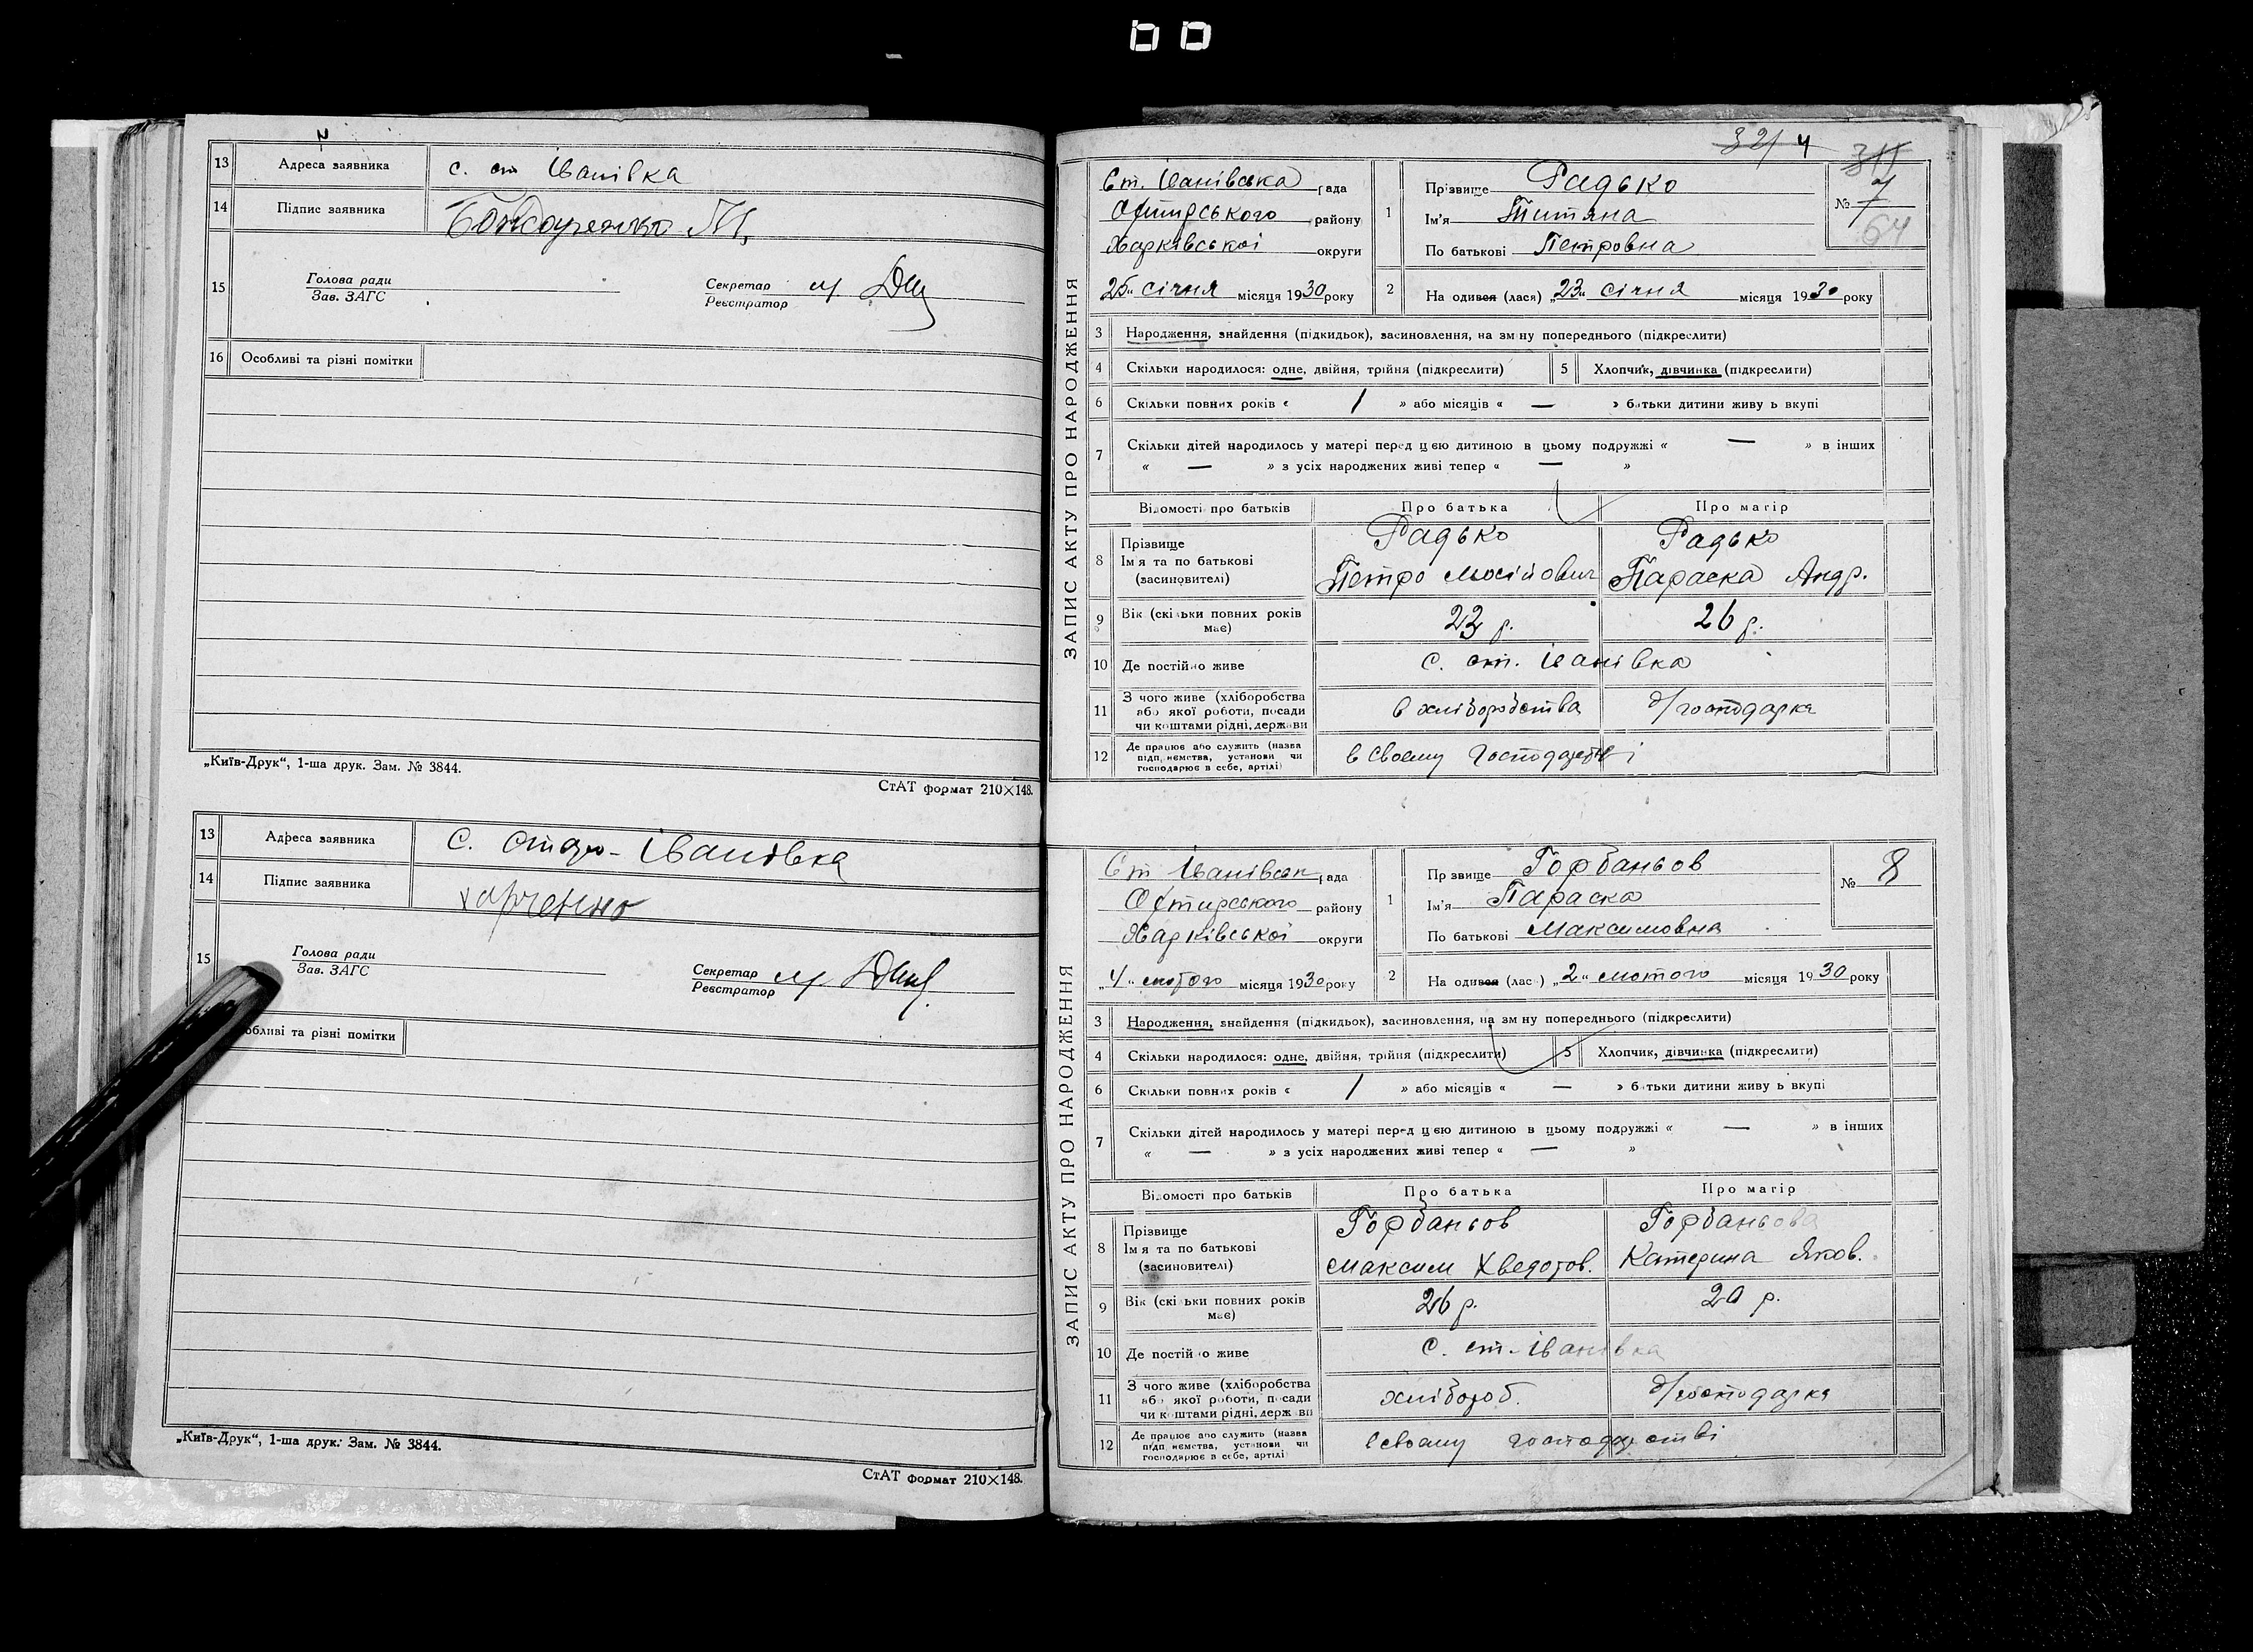 13 Адреса заявника с. ст Іванівка
14 Підпис заявника Бондаренко М,
15 Голова ради
Зав. ЗАГС
Секретар
Реєстратор
16 Особливі та різні помітки
„Київ-Друк“, 1-ша друк. Зам. № 3844.
СтАТ формат 210×148.
13 Адреса заявника С. Старо-Іванівка
14 Підпис заявника Харченко
15 Голова ради
Зав. ЗАГС
Секретар
Реєстратор
обливі та різні помітки
„Київ-Друк“, 1-ша друк. Зам. № 3844.
СтАТ формат 210×148.
32/ 4
ЗАПИС АКТУ ПРО НАРОДЖЕННЯ
Ст. Іванівська рада
Охтирського району
Харківської округи
„25“ січня місяця 1930 року
1 Прізвище Радько
Ім'я Титяна
По батькові Петровна
№ 7
64
2 На одився (лася) „23“ січня місяця 1930 року
3 Народження, знайдення (підкидьок), засиновлення, на зм ну попереднього (підкреслити)
4 Скільки народилося: одне, двійня, трійня (підкреслити) 5 Хлопчик, дівчинка (підкреслити)
6 Скільки повних років « 1 » або місяців « — » батьки дитини живу ь вкупі
7 Скільки дітей народилось у матері перед цією дитиною в цьому подружжі « — » в інших
« — » з усіх народжених живі тепер « — »
Відомості про батьків Про батька Про матір
8 Прізвище Радько Радько
Ім я та по батькові
(засиновителі) Петро Мосійович Параска Андр.
9 Вік (скільки повних років має) 23 р. 26 р.
10 Де постійно живе с. ст. Іванівка
11 З чого живе (хліборобства
або якої роботи, посади
чи коштами рідні, держави в хліборобства д/господарка
12 Де працює або служить (назва
підп иємства, установи чи
господарює в себе, артілі) в своему господарстві
ЗАПИС АКТУ ПРО НАРОДЖЕННЯ
Ст Іванівськ рада
Охтирського району
Харківської округи
„4“ лютого місяця 1930 року
1 Пр звище Горбаньов
Ім'я Параска
По батькові Максимовна
№ 8
2 На одився (лас ) „2“ лютого місяця 1930 року
3 Народження, знайдення (підкидьок), засиновлення, на зм ну попереднього (підкреслити)
4 Скільки народилося: одне, двійня, трійня (підкреслити) 5 Хлопчик, дівчинка (підкреслити)
6 Скільки повних років « 1 » або місяців « — » батьки дитини живу ь вкупі
7 Скільки дітей народилось у матері перед цією дитиною в цьому подружжі « — » в інших
« — » з усіх народжених живі тепер « — »
Відомості про батьків Про батька Про матір
8 Прізвище Горбаньов Горбаньова
Ім я та по батькові
(засиновителі) Максим Хведоров. Катерина Яков.
9 Вік (скільки повних років має) 26 р. 20 р.
10 Де постійно живе с. ст-Іванівка
11 З чого живе (хліборобства
або якої роботи, посади
чи коштами рідні, держави хлібороб. д/господарка
12 Де працює або служить (назва
підп иємства, установи чи
господарює в себе, артілі) в своему господарстві